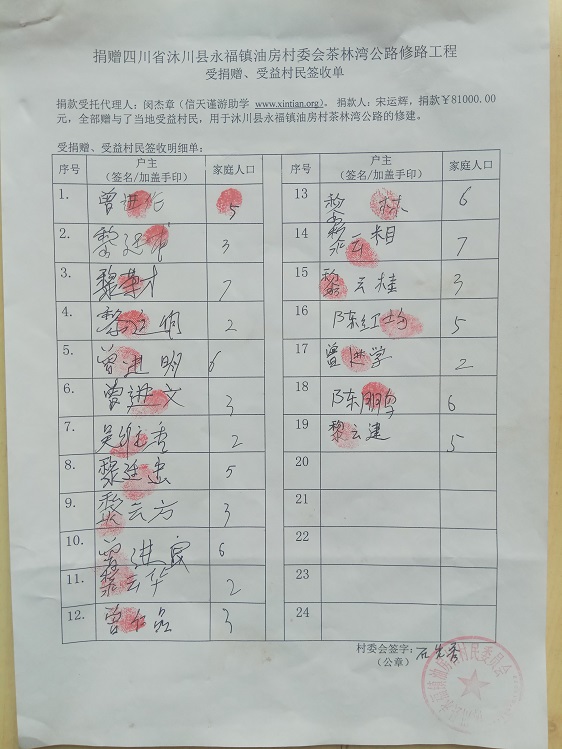 捐赠四川省沐川县永福镇油房村委会茶林湾公路修路工程
受捐赠、受益村民签收单
捐款受托代理人：闵杰章（信天谨游助学 www.xintian.org）。捐款人：宋运辉，捐款￥81000.00
元，全部赠与了当地受益村民，用于沐川县永福镇油房村茶林湾公路的修建。
受捐赠、受益村民签收明细单：
序号 户主（签名/加盖手印） 家庭人口
1. 曾进 5
2. 黎廷 3
3. 黎 才 7
4. 黎 2
5. 曾进明 6
6. 曾进文 3
7. 吴 秀 2
8. 黎廷忠 5
9. 黎云方 3
10. 曾进良 6
11. 黎云华 2
12. 曾 品 3
序号 户主（签名/加盖手印） 家庭人口
13 黎 林 6
14 黎云相 7
15 黎云桂 3
16 陈红均 5
17 曾进学 2
18 陈鹏 6
19 黎云建 5
20
21
22
23
24
村委会签字：石 秀
（公章）
永福镇油房村村民委员会